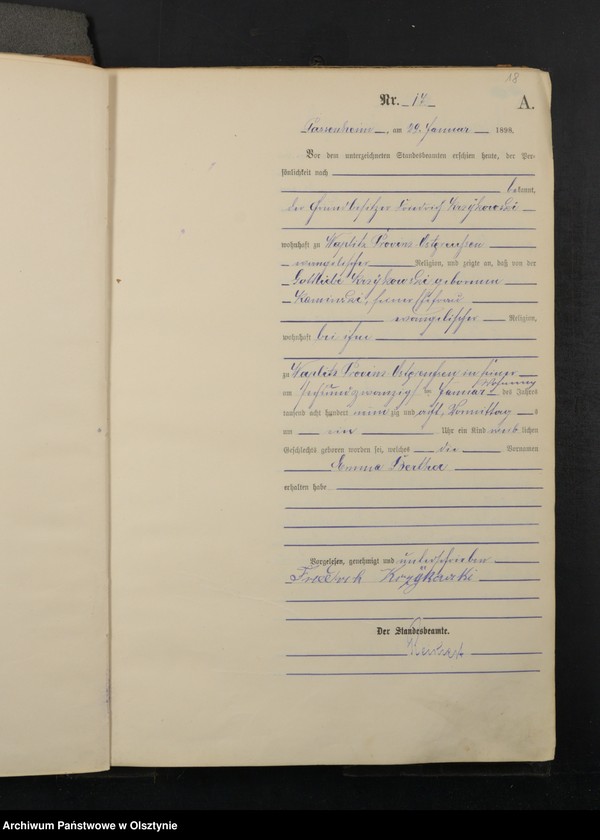 18
Nr. 17
A.
Passenheim, am 29. Januar 1898.
Vor dem unterzeichneten Standesbeamten erschien heute, der Per-
sönlichkeit nach
bekannt,
der Grundbesitzer Friedrich Krzykowski
wohnhaft zu Waplitz Provinz Ostpreußen
evangelischer Religion, und zeigte an, daß von der
Gottliebe Krzykowski geborenen
Kaminski, seiner Ehefrau
evangelischer Religion,
wohnhaft bei ihm
zu Waplitz Provinz Ostpreußen in seiner
Wohnung
am sechsundzwanzigsten Januar des Jahres
tausend acht hundert neunzig und acht, Vormittags
um ein Uhr ein Kind weiblichen
Geschlechts geboren worden sei, welches die Vornamen
Emma Bertha
erhalten habe
Vorgelesen, genehmigt und unterschrieben
Friedrich Krzykowski
Der Standesbeamte.
Archiwum Państwowe w Olsztynie